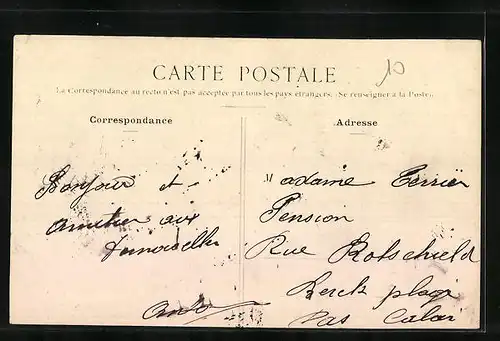 10
CARTE POSTALE
La Correspondance au recto n'est pas acceptée par tous les pays étrangers. (Se renseigner à la Poste).
Correspondance
Bonjour et
amitier aux
Demoiselles
Adresse
Madame Terrier
Pension
Rue Rotschield
Berck plage
Pas Calai